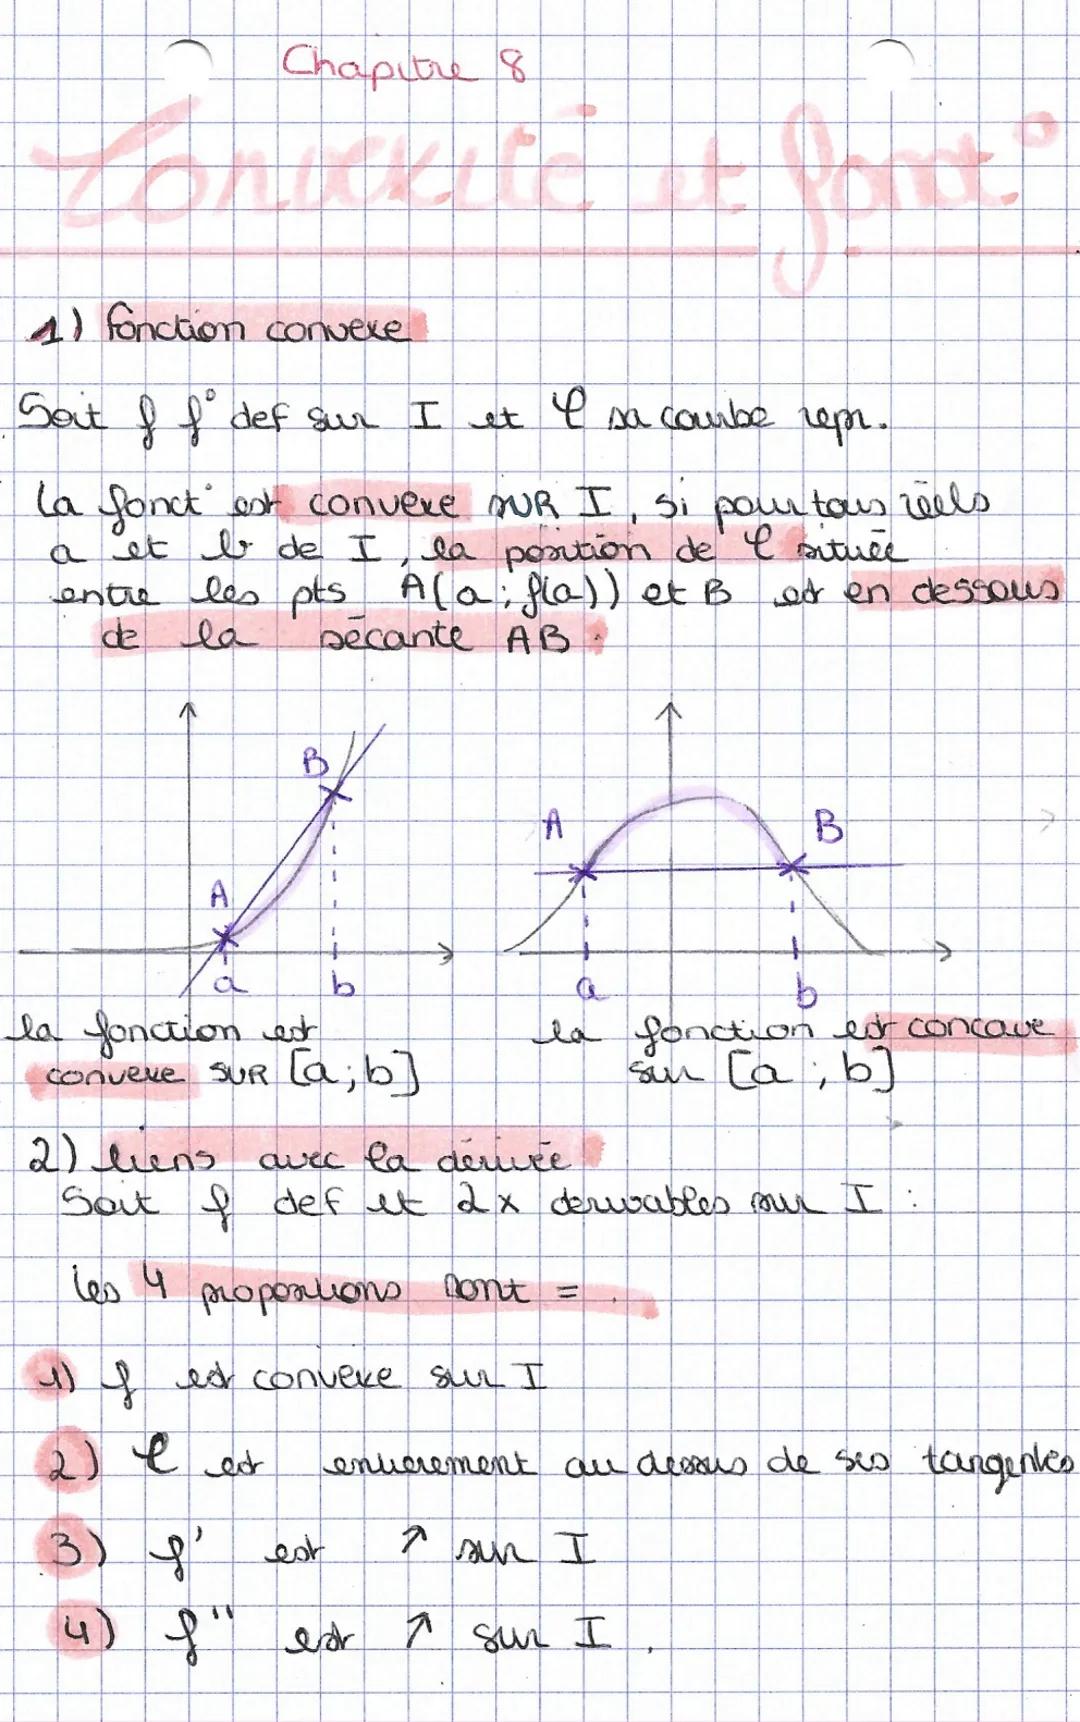 Chapitre 8
Convexité et fonct°
1) fonction convexe
Soit f f° def sur I et C sa courbe repr.
la fonct° est convexe SUR I, si pour tous réels
a et b de I, la position de C située
entre les pts A(a; f(a)) et B est en dessous
de la sécante AB.
B
A
a
b
A
B
a
b
la fonction est
convexe SUR [a; b]
la fonction est concave
sur [a ; b]
2) liens avec la dérivée
Soit f def et 2x derivables sur I :
les 4 propositions sont = .
1) f est convexe sur I
2) C est entierement au dessus de ses tangentes
3) f' est ↗ sur I
4) f'' est ↗ sur I.